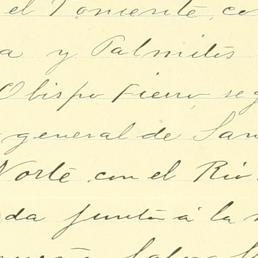 el Poniente, co
a y Palmitos
Obispo Fierro, seg
general de San
Norte, con el Rio
da junto á la